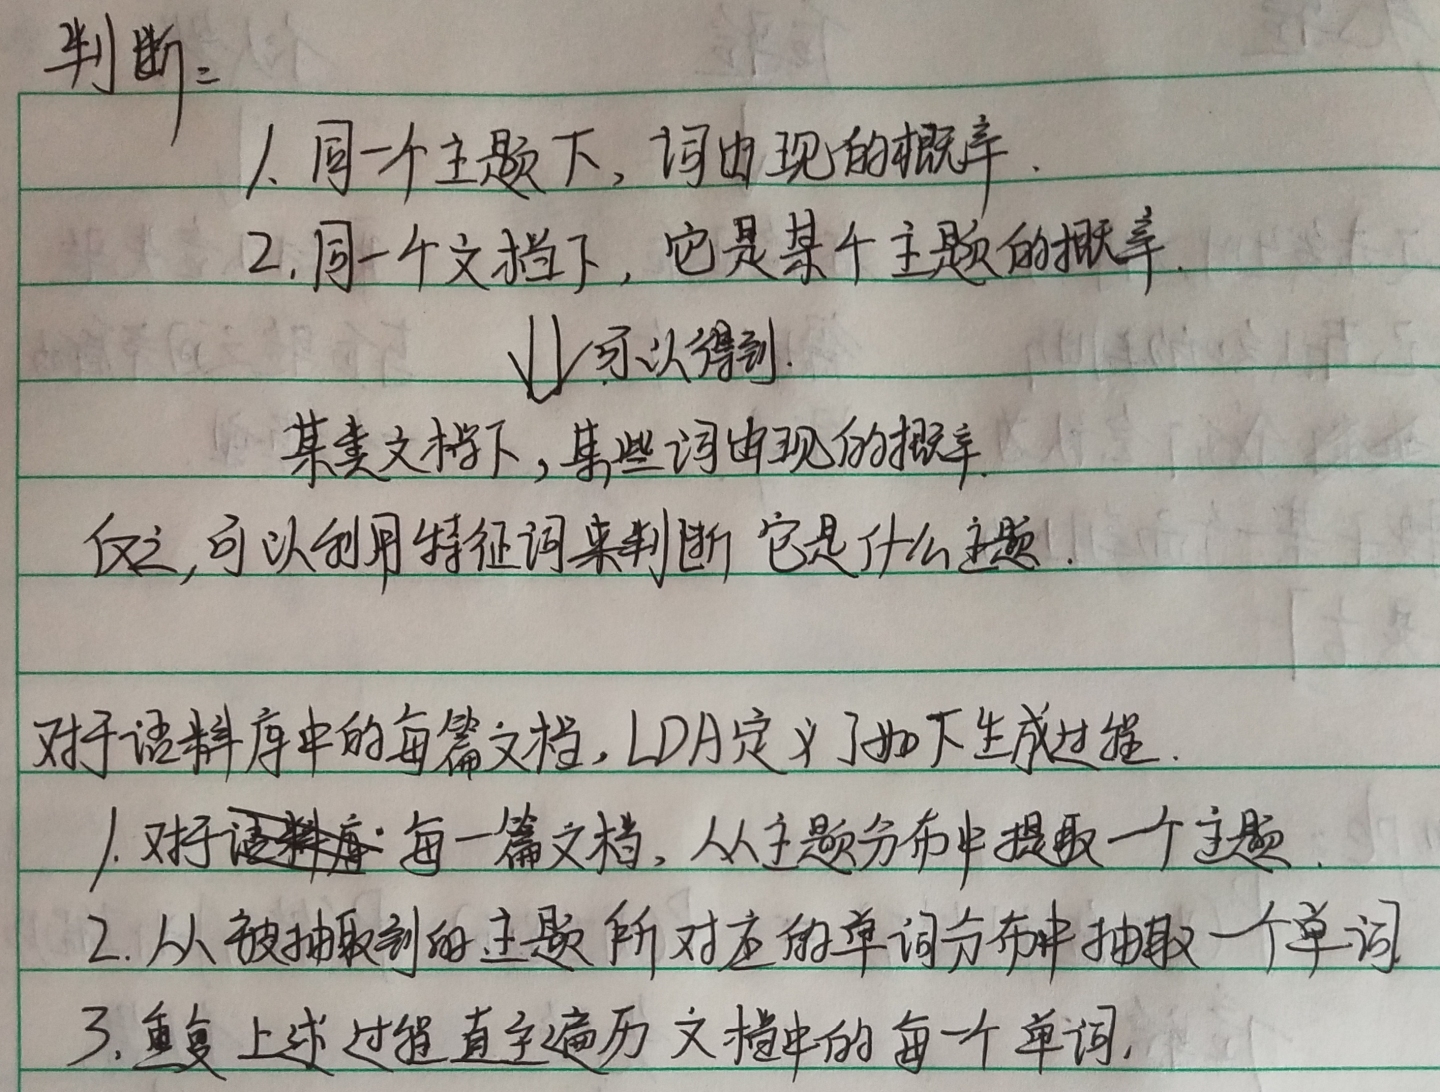 判断：
1. 同一个主题下，词出现的概率.
2. 同一个文档下，它是某个主题的概率.
⇓ 可以得到.
某类文档下，某些词出现的概率.
反之，可以利用特征词来判断 它是什么主题.
对于语料库中的每篇文档，LDA定义了如下生成过程.
1. 对于 每一篇文档，从主题分布中提取一个主题.
2. 从被抽取到的主题所对应的单词分布中抽取一个单词
3. 重复上述过程直至遍历文档中的每一个单词.